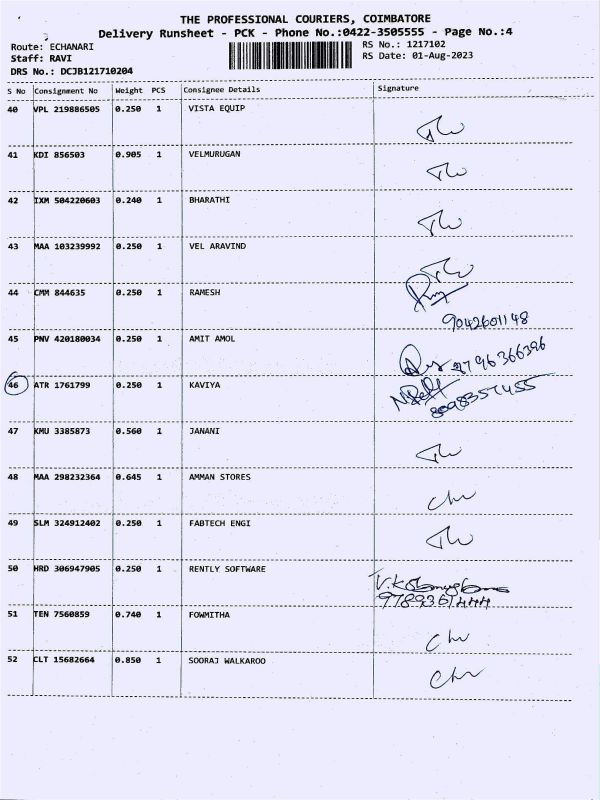 THE PROFESSIONAL COURIERS, COIMBATORE
Delivery Runsheet - PCK - Phone No.:0422-3505555 - Page No.:4
Route: ECHANARI
RS No.: 1217102
Staff: RAVI
RS Date: 01-Aug-2023
DRS No.: DCJB121710204
S No Consignment No Weight PCS Consignee Details Signature
40 VPL 219886505 0.250 1 VISTA EQUIP
41 KDI 856503 0.905 1 VELMURUGAN
42 IXM 504220603 0.240 1 BHARATHI
43 MAA 103239992 0.250 1 VEL ARAVIND
44 CMM 844635 0.250 1 RAMESH
9042601148
45 PNV 420180034 0.250 1 AMIT AMOL
46 ATR 1761799 0.250 1 KAVIYA
47 KMU 3385873 0.560 1 JANANI
48 MAA 298232364 0.645 1 AMMAN STORES
49 SLM 324912402 0.250 1 FABTECH ENGI
50 HRD 306947905 0.250 1 RENTLY SOFTWARE
51 TEN 7560859 0.740 1 FOWMITHA
52 CLT 15682664 0.850 1 SOORAJ WALKAROO